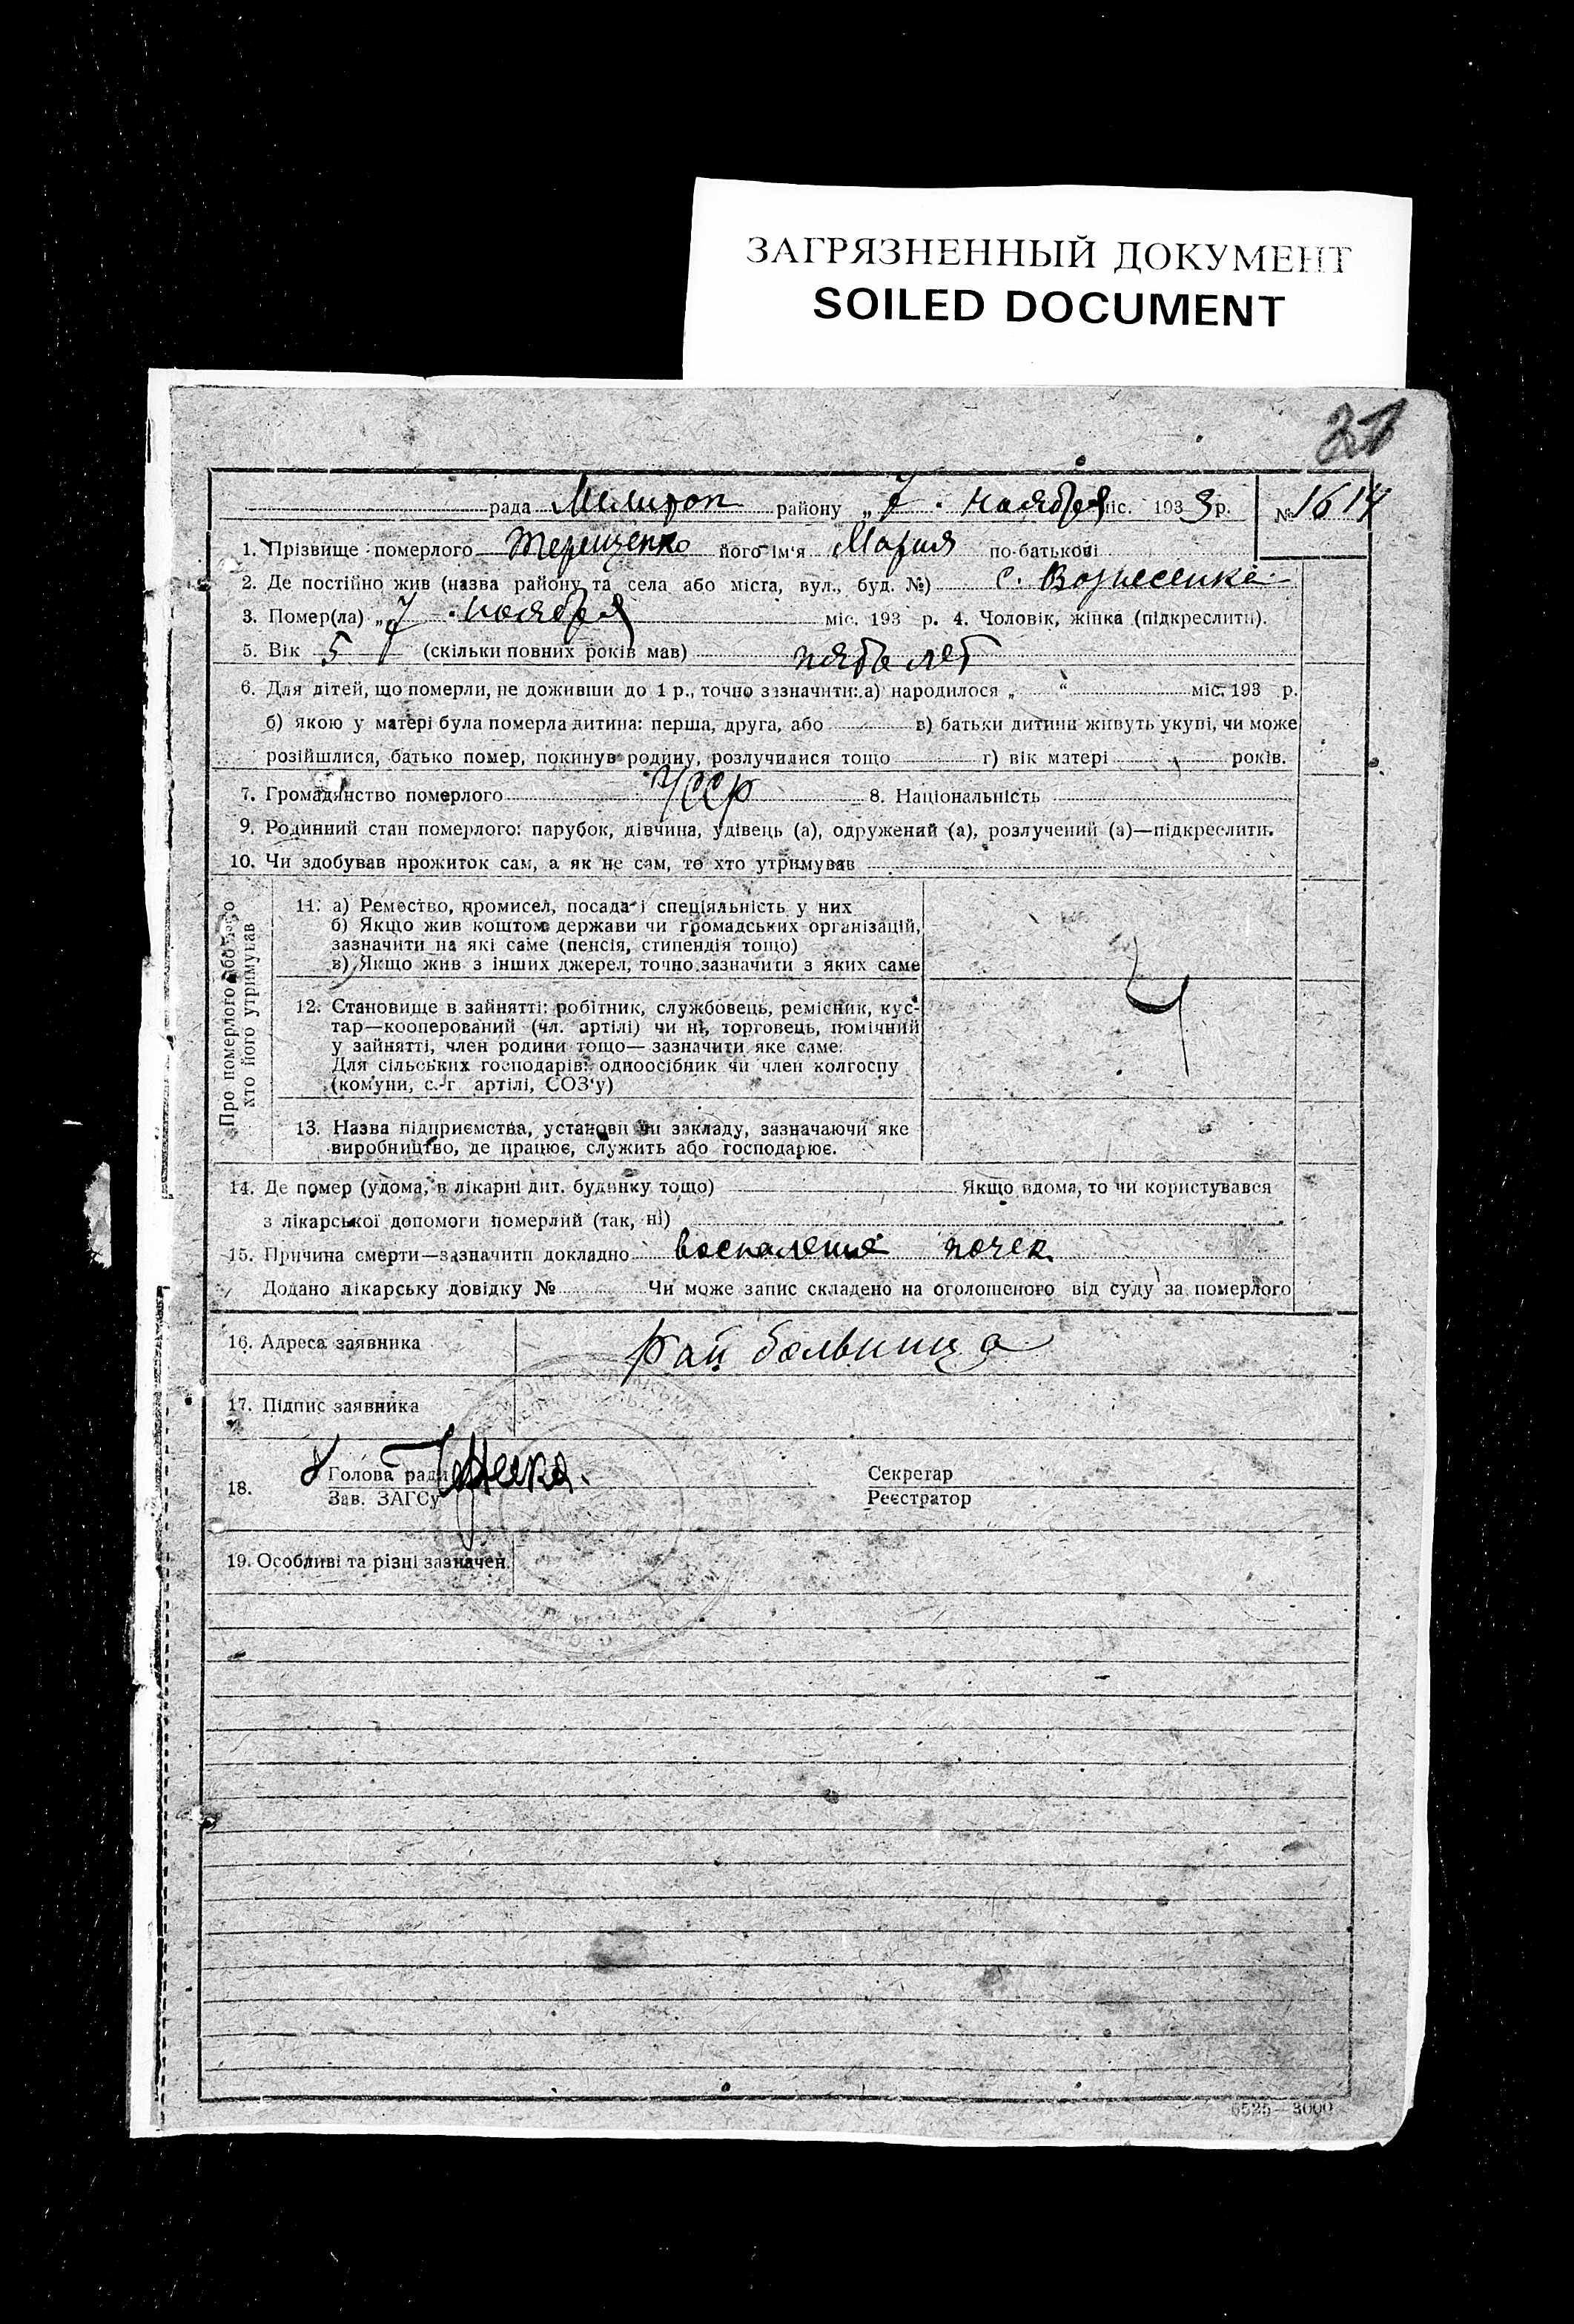 ЗАГРЯЗНЕННЫЙ ДОКУМЕНТ
SOILED DOCUMENT
рада Мелитоп району „7. ноября міс. 1933 р. № 1614
1. Прізвище померлого Терещенко його ім'я Мария по-батькові
2. Де постійно жив (назва району та села або міста, вул., буд. №) с. Вознесенка
3. Помер(ла) „7. ноября міс. 193 р. 4. Чоловік, жінка (підкреслити).
5. Вік 5 (скільки повних років мав) пять лет
6. Для дітей, що померли, не доживши до 1 р., точно зазначити: а) народилося „ “ міс. 193 р.
б) якою у матері була померла дитина: перша, друга, або в) батьки дитини живуть укупі, чи може
розійшлися, батько помер, покинув родину, розлучилися тощо г) вік матері років.
7. Громадянство померлого УССР 8. Національність
9. Родинний стан померлого: парубок, дівчина, удівець (а), одружений (а), розлучений (а)—підкреслити.
10. Чи здобував прожиток сам, а як не сам, то хто утримував
Про померлого або того
хто його утримував
11. а) Ремество, промисел, посада і спеціяльність у них
б) Якщо жив коштом держави чи громадських організацій,
зазначити на які саме (пенсія, стипендія тощо)
в) Якщо жив з інших джерел, точно зазначити з яких саме
12. Становище в зайнятті: робітник, службовець, ремісник, кус-
тар—кооперований (чл. артілі) чи ні, торговець, помічний
у зайнятті, член родини тощо— зазначити яке саме.
Для сільських господарів: одноосібник чи член колгоспу
(комуни, с.-г артілі, СОЗ'у)
13. Назва підприємства, установи чи закладу, зазначаючи яке
виробництво, де працює, служить або господарює.
14. Де помер (удома, в лікарні дит. будинку тощо) Якщо вдома, то чи користувався
з лікарської допомоги померлий (так, ні)
15. Причина смерти—зазначити докладно воспаление почек
Додано лікарську довідку № Чи може запис складено на оголошеного від суду за померлого
16. Адреса заявника Рай больница
17. Підпис заявника
18. Голова ради Секретар
Зав. ЗАГСу Реєстратор
19. Особливі та різні зазначен.
6525—3000